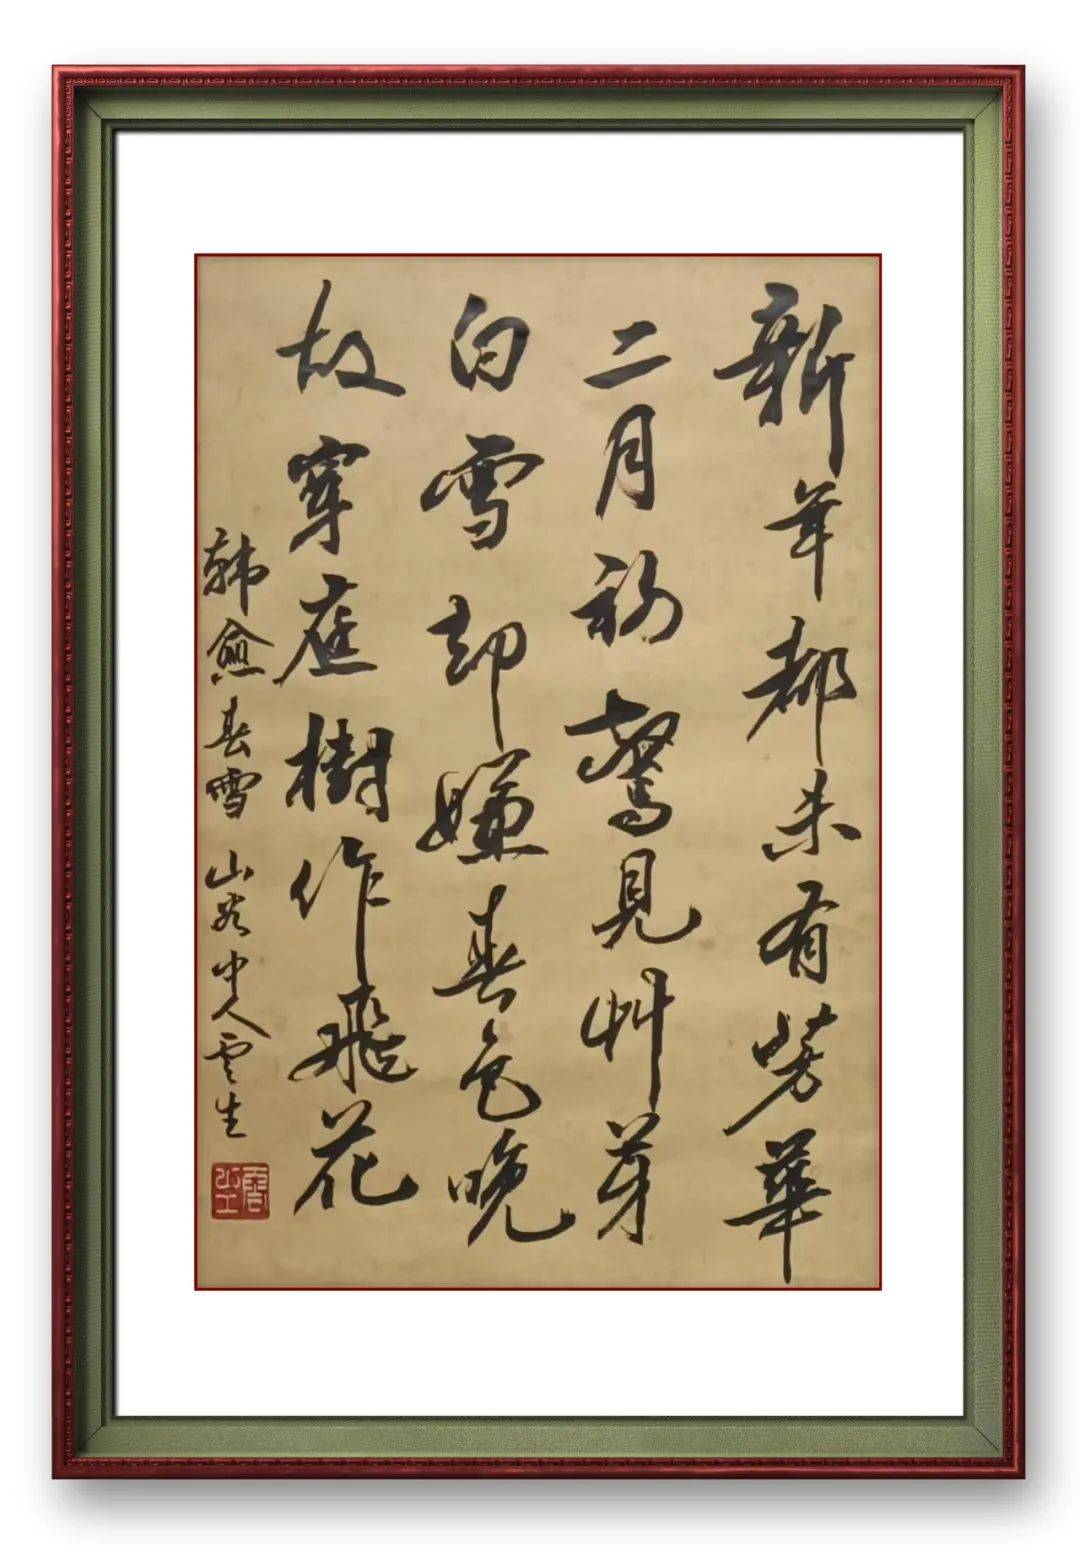 新年都未有芳華
二月初驚見艸芽
白雪却嫌春色晚
故穿庭樹作飛花
韩愈春雪 山谷中人雲生